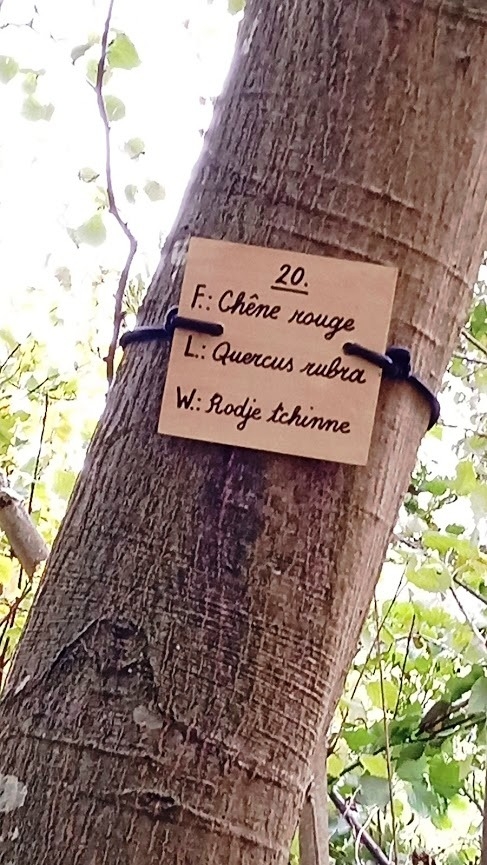 20.
F.: Chêne rouge
L.: Quercus rubra
W.: Rodje tchinne